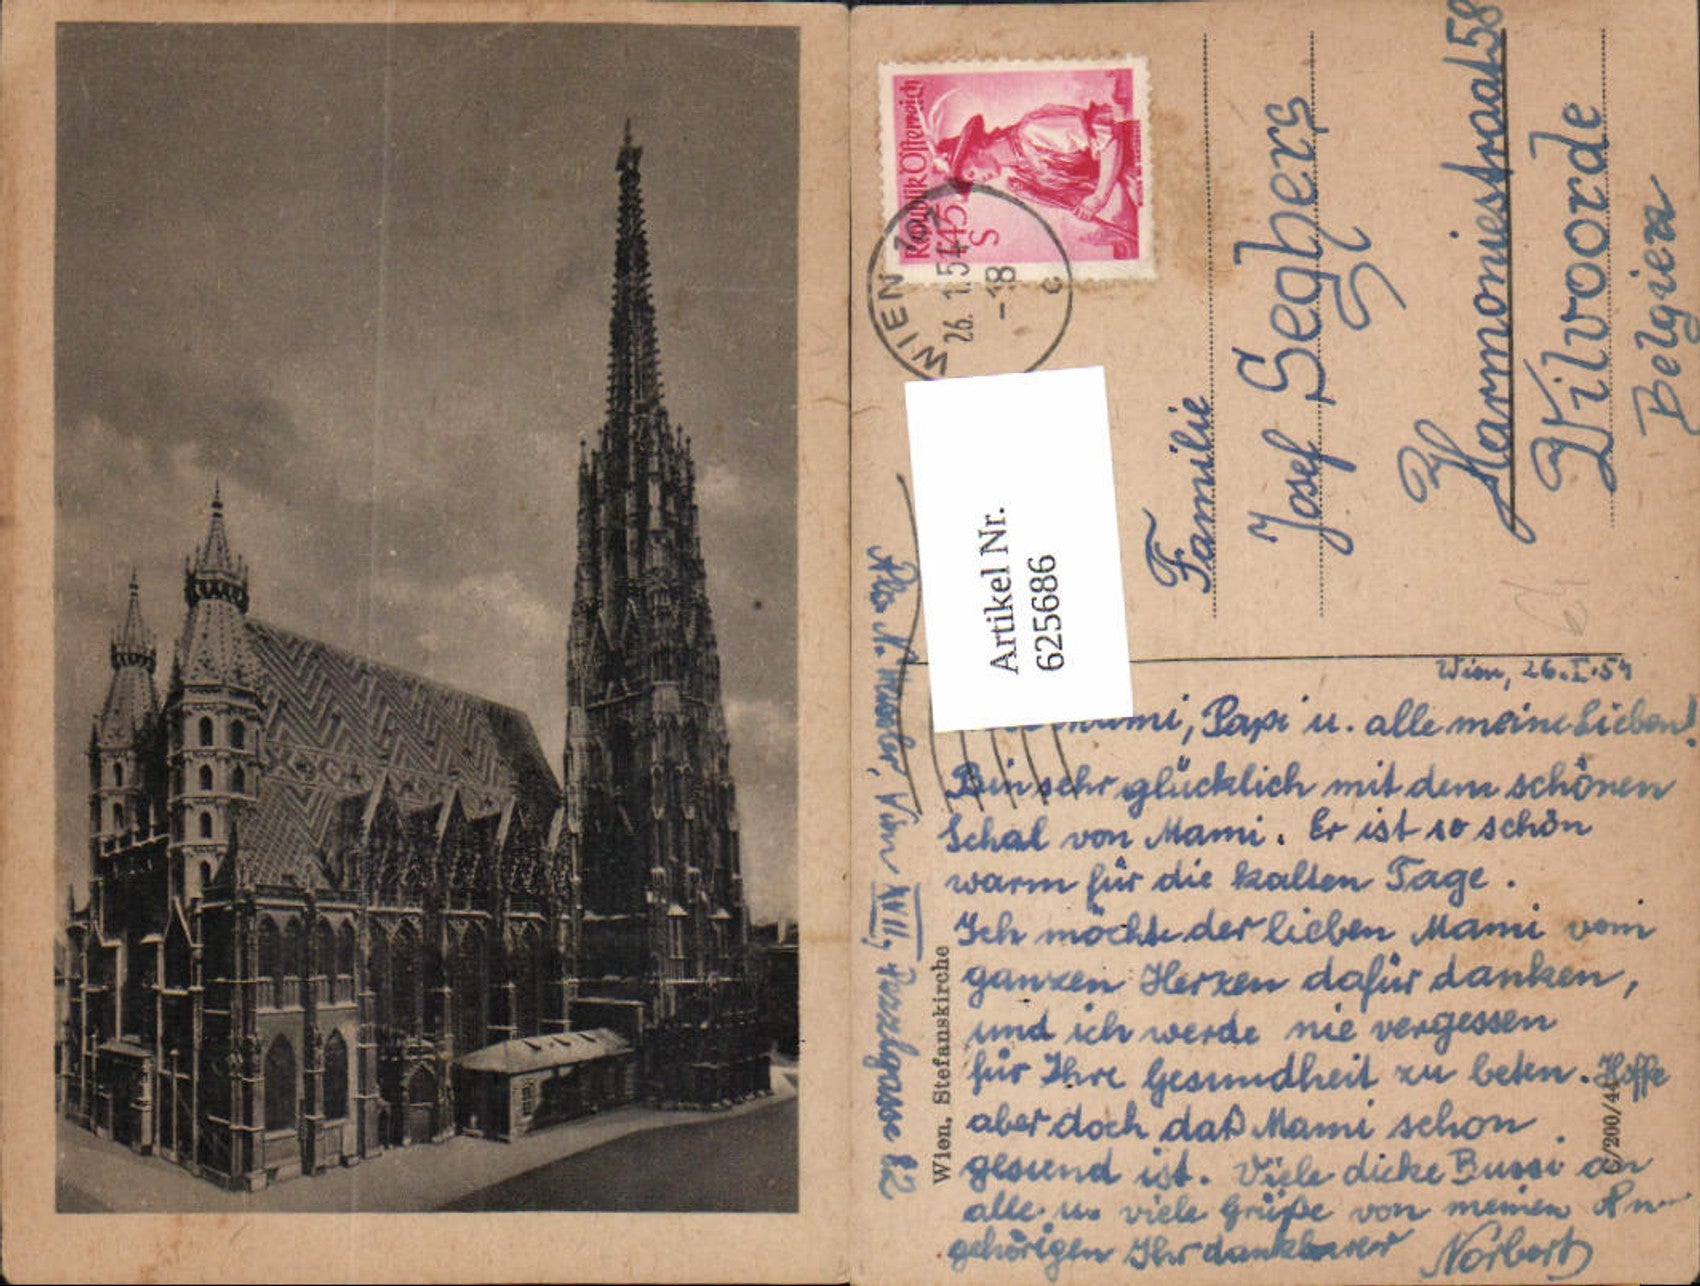 Republik Österreich
1.45 S
WIEN
26. 1. 54
-18
c
Artikel Nr.
625686
Familie
Josef Seghers
Harmoniestraat 58
Vilvoorde
Belgien
Wien, 26.I.54
Papi u. alle meine Lieben!
Bin sehr glücklich mit dem schönen
Schal von Mami. Er ist so schön
warm für die kalten Tage.
Ich möchte der lieben Mami vom
ganzen Herzen dafür danken,
und ich werde nie vergessen
für Ihre Gesundheit zu beten. Hoffe
aber doch daß Mami schon
gesund ist. Viele dicke Bussi an
alle u. viele Grüße von meinen An-
gehörigen Ihr dankbarer Norbert
Wien, Stefanskirche
Abs. N. Wien XVIII,